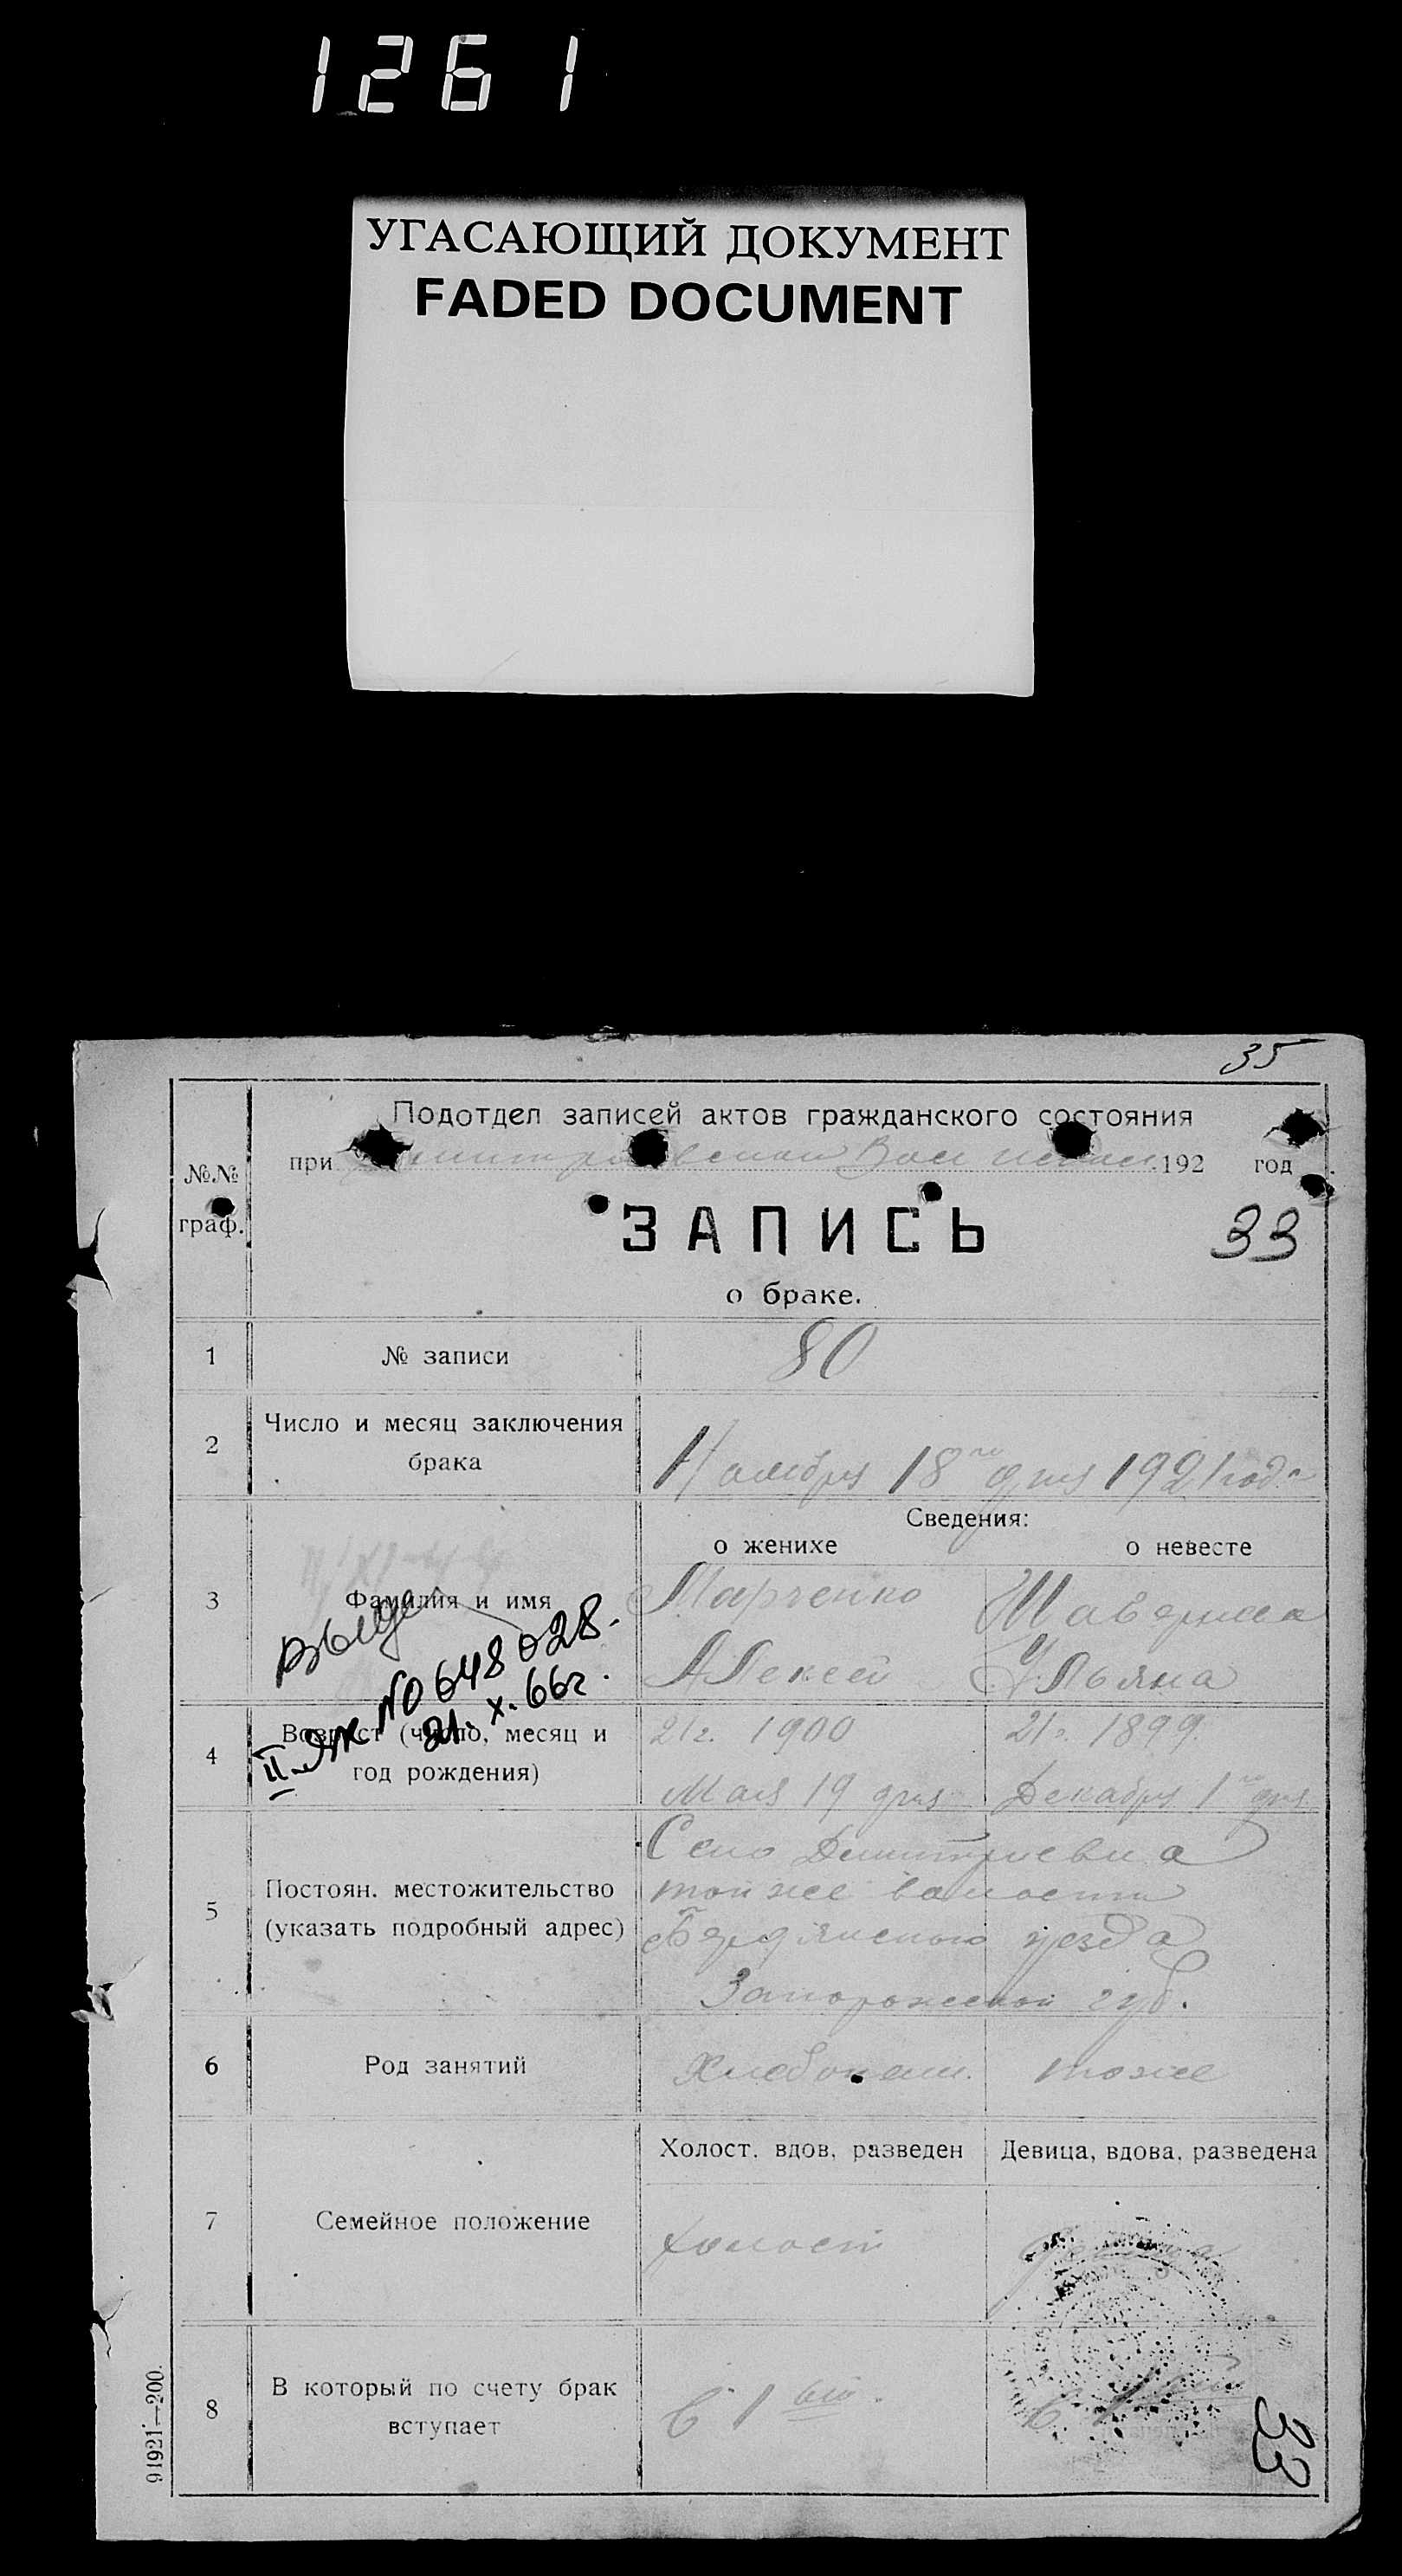 1261
УГАСАЮЩИЙ ДОКУМЕНТ
FADED DOCUMENT
35
Подотдел записей актов гражданского состояния
№№
граф.
при 192 год
ЗАПИСЬ
33
о браке.
1 № записи 80
2 Число и месяц заключения
брака
Ноября 18го дня 1921 года
Сведения:
о женихе о невесте
3 Фамилия и имя
Марченко
Алексей Ульяна
II ЯЖ №048028.
21.X.66г.
4 Возраст (число, месяц и
год рождения)
21г. 1900 21г. 1899.
Мая 19 дня Декабря 1го дня
5 Постоян. местожительство
(указать подробный адрес)
Село
той же волости
Бердянского уезда
Запорожской губ.
6 Род занятий Хлебопаш. тоже
Холост, вдов, разведен Девица, вдова, разведена
7 Семейное положение
холост девица
8 В который по счету брак
вступает
в 1ый.
33
91921—200.